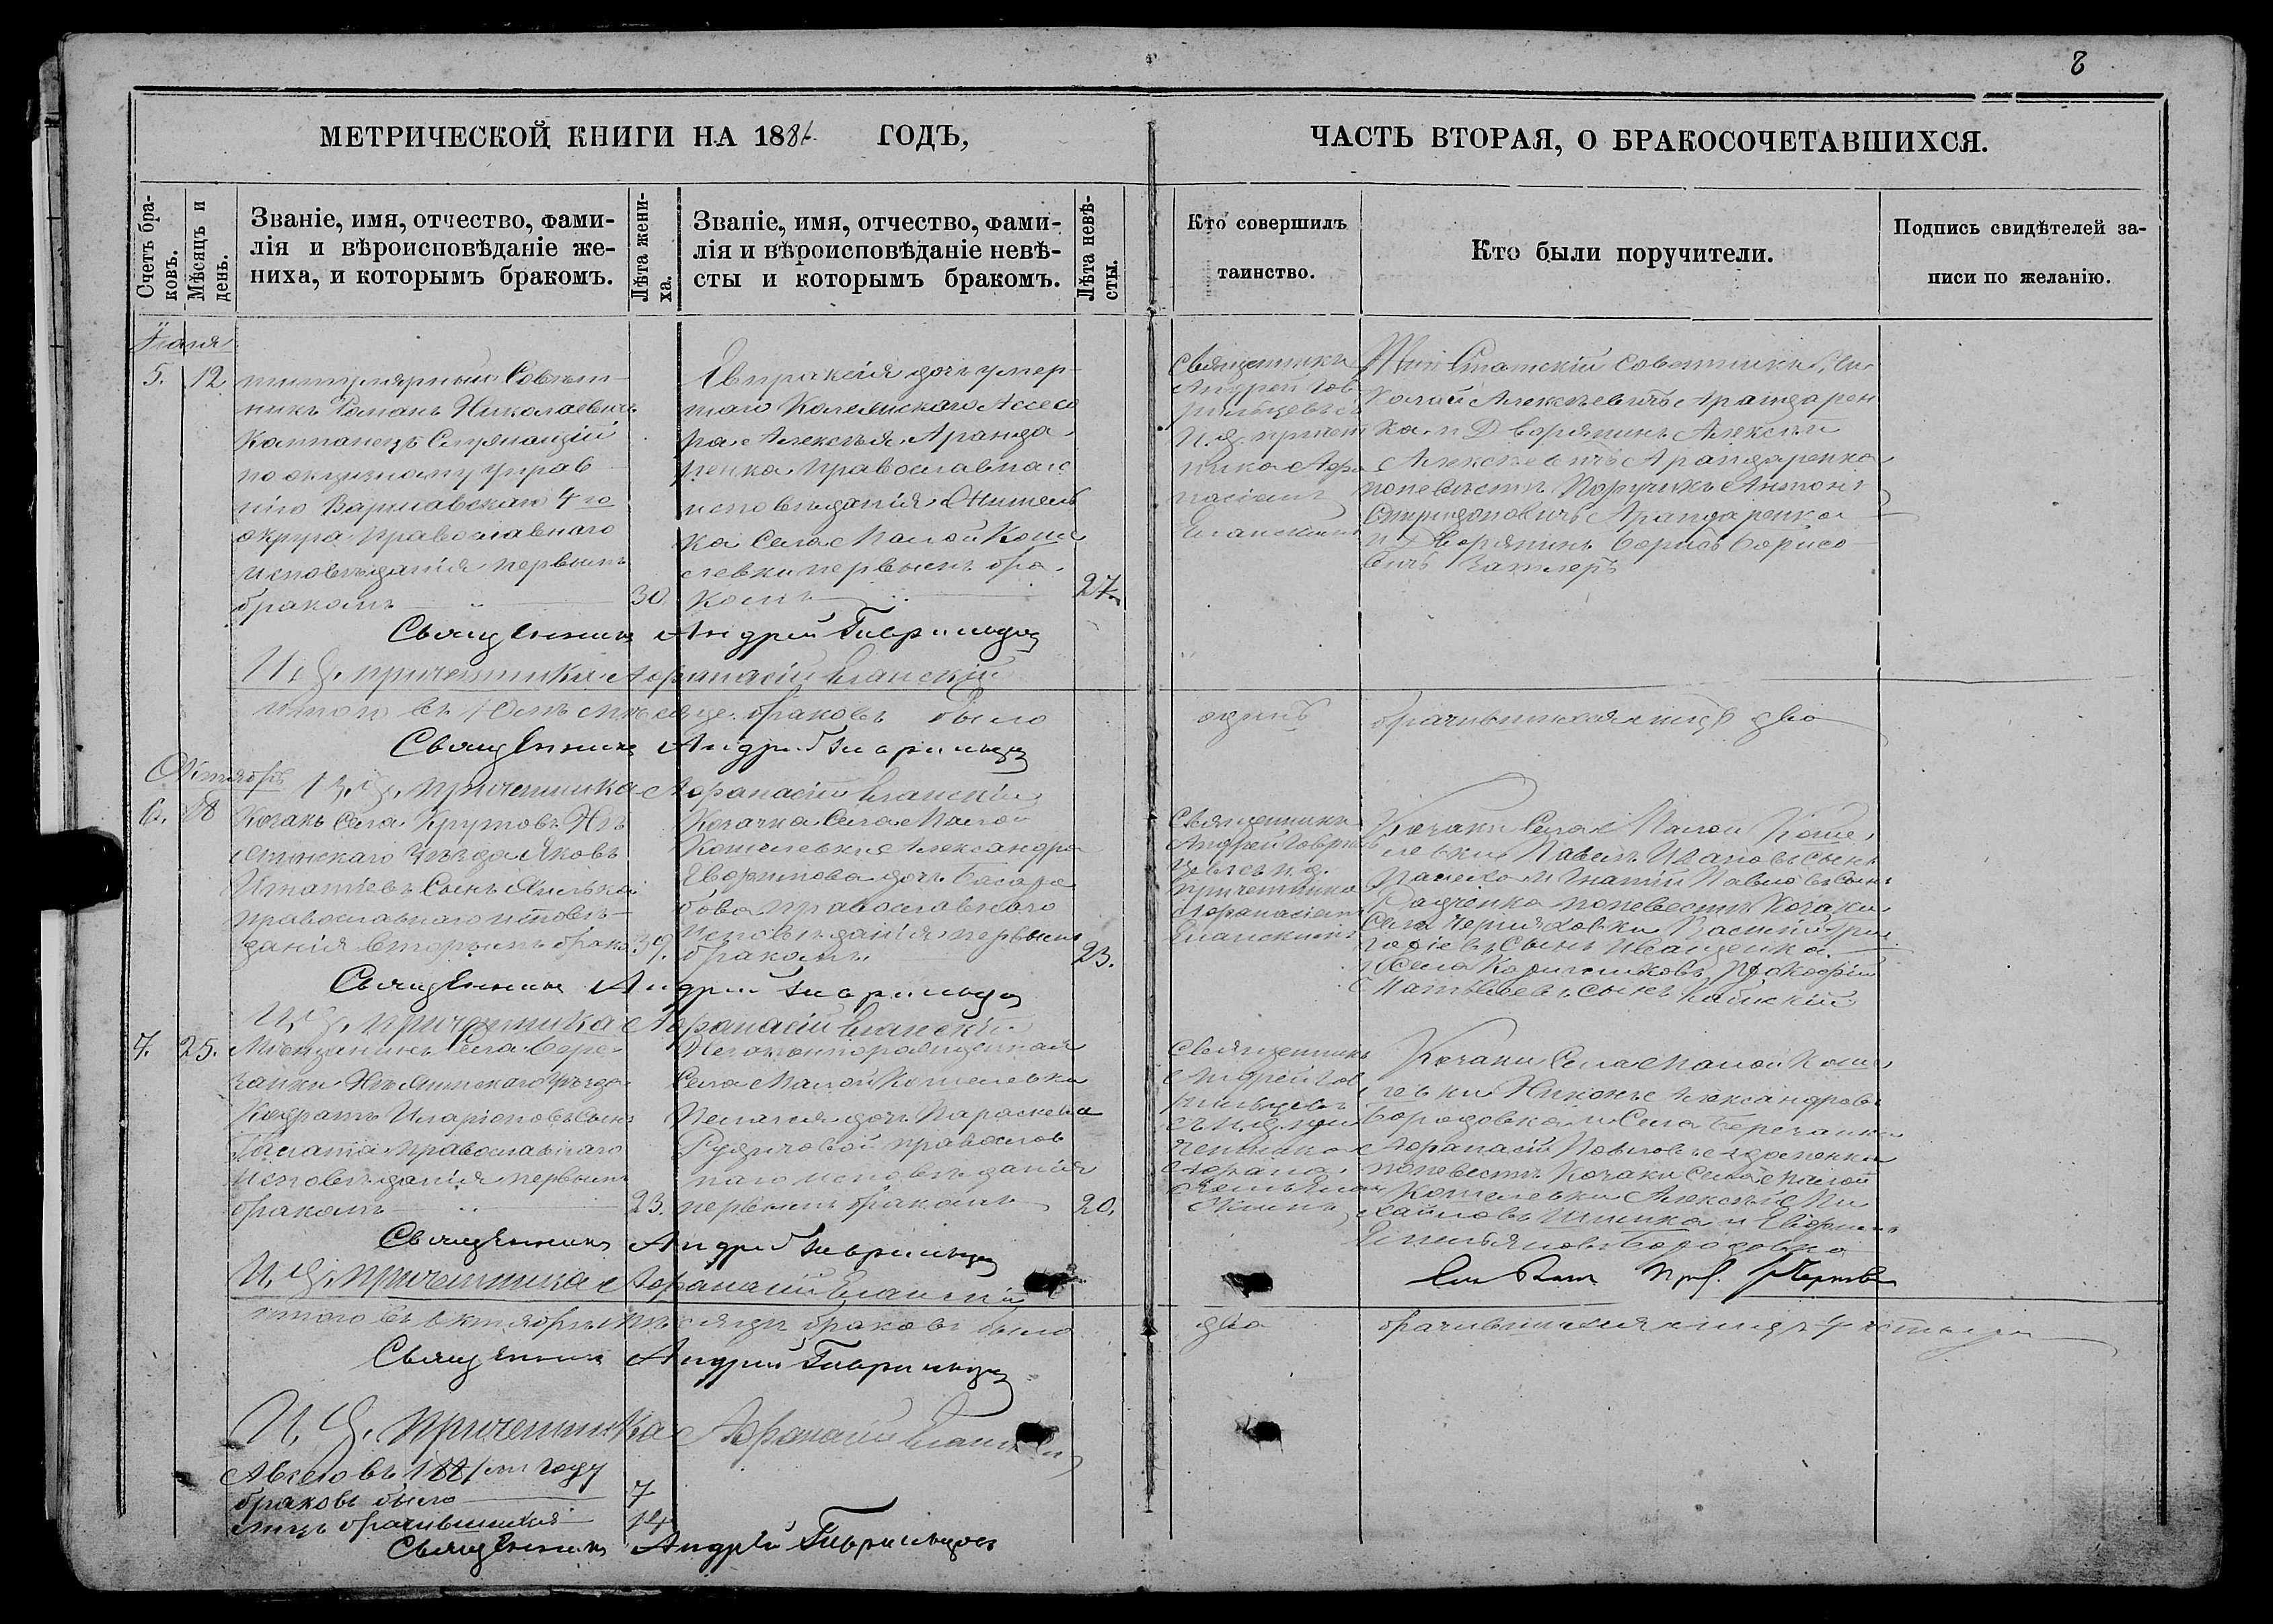 8
МЕТРИЧЕСКОЙ КНИГИ НА 1881 ГОДЪ,
ЧАСТЬ ВТОРАЯ, О БРАКОСОЧЕТАВШИХСЯ.
Счетъ бра-
ковъ.
Мѣсяцъ и
день.
Званіе, имя, отчество, фами-
лія и вѣроисповѣданіе же-
ниха, и которымъ бракомъ.
Лѣта жени-
ха.
Званіе, имя, отчество, фами-
лія и вѣроисповѣданіе невѣ-
сты и которымъ бракомъ.
Лѣта невѣ-
сты.
Кто совершилъ
таинство.
Кто были поручители.
Подпись свидѣтелей за-
писи по желанію.
5. 12
титулярный Совѣт-
никъ Романъ Николаевичъ
Компанецъ Служащій
по акцизному управ
Варшавскаго 4го
округа православнаго
исповѣданія первымъ
бракомъ 30
Евпраксія дочь умер-
шаго Колежскаго Ассесо
ра Алексѣя Аранда
ренка православнаго
исповѣданія Житель
ка Села Малой Коше
левки первымъ бра
комъ 27
Священникъ
Андрей Гав
рильцевъ съ
и. д. причет
ника Афа
насіемъ
Еланскимъ
Статскій Советникъ Ни
колай Алексѣевичъ Арандарен
ка и Дворянинъ Алексѣй
Алексѣевичъ Арандаренко
по невѣстѣ Поручикъ Антонъ
Спиридоновичъ Арандаренко
и Дворянинъ Борисъ Борисо
вичъ
Священникъ Андрей Гаврильцевъ
И. д. причетника Афанасій Еланскій
итого въ Юлѣ мѣсяце браковъ было
одинъ
брачившихся лицъ два
Священникъ Андрей Гаврильцевъ
И. д. причетника Афанасій Еланскій
Октябрь
6. 18
Козакъ Села Крутовъ Нѣ
жинскаго уѣзда Яковъ
Игнатіевъ Сынъ
православнаго исповѣ-
данія вторымъ брако 39.
Козачка Села Малой
Кошелевки Александра
Евфимова дочь Басара
бова православнаго
исповѣданія первымъ
бракомъ 23.
Священникъ
Андрей Гавриль
цевъ съ и. д.
причетника
Афанасіемъ
Еланскимъ
Козаки Села Малой Коше
левки Павелъ Ивановъ Сынъ
и Игнатій Павловъ Сынъ
Радченко по невестѣ Козаки
Села Черняховки Василій Гри
горіевъ Сынъ Иващенко
и Села Прокофій
Матвѣевъ Сынъ
Священникъ Андрей Гаврильцевъ
И. д. причетника Афанасій Еланскій
7. 25.
Мѣщанинъ Села Бере-
занки Нѣжинскаго уѣзда
Кодратъ Иларіоновъ Сынъ
православнаго
исповѣданія первымъ
бракомъ 23.
Незаконнорожденная
Села Малой Кошелевки
Пелагея дочь Параскевы
православ
наго исповѣданія
первымъ бракомъ 20.
Священникъ
Андрей Гав
рильцевъ
съ и. д. при
четника
Козаки Села Малой Коше
левки Никонъ Александровъ
Бородовка и Села Березанки
Афанасій Павловъ
по невестѣ Козаки Села Малой
Кошелевки Алексѣй Ми
хайловъ Шишка и Евфимъ
Емельяновъ Бородовка
Священникъ Андрей Гаврильцевъ
И. д. причетника Афанасій Еланскій
итого въ октябрѣ мѣсяцѣ браковъ было
два
брачившихся лицъ 4 четыре
Священникъ Андрей Гаврильцевъ
И. д. причетника Афанасій Еланскій
А всего въ 1881 году
браковъ было 7
лицъ брачившихся 14
Священникъ Андрей Гаврильцевъ